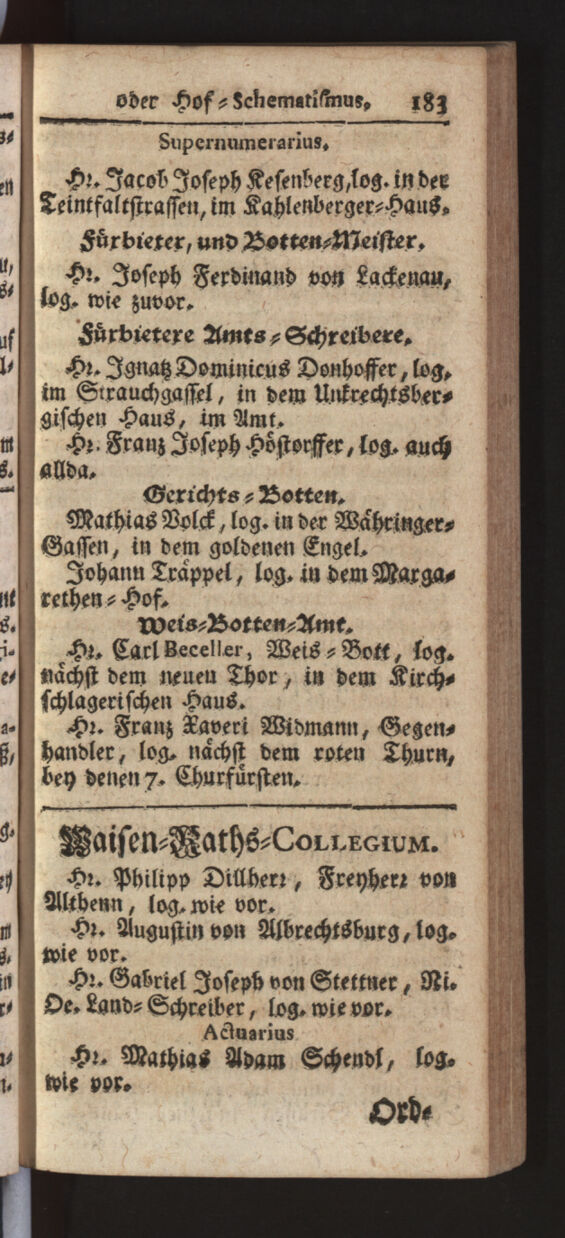 oder Hof-Schematismus. 183
Supernumerarius.
Hr. Jacob Joseph Kesenberg, log. in der
Teintfaltstrassen, im Kahlenberger-Haus.
Fürbieter, und Botten-Meister.
Hr. Joseph Ferdinand von Lackenau,
log. wie zuvor.
Fürbietere Amts-Schreibere.
Hr. Ignatz Dominicus Donhoffer, log.
im Strauchgassel, in dem Unkrechtsber-
gischen Haus, im Amt.
Hr. Franz Joseph Höstorffer, log. auch
allda.
Gerichts-Botten.
Mathias Volck, log. in der Währinger-
Gassen, in dem goldenen Engel.
Johann Träppel, log. in dem Marga-
rethen-Hof.
Weis-Botten-Amt.
Hr. Carl Beceller, Weis-Bott, log.
nächst dem neuen Thor, in dem Kirch-
schlagerischen Haus.
Hr. Franz Xaveri Widmann, Gegen-
handler, log. nächst dem roten Thurn,
bey denen 7. Churfürsten.
Waisen-Raths-COLLEGIUM.
Hr. Philipp Dillherr, Freyherr von
Althenn, log. wie vor.
Hr. Augustin von Albrechtsburg, log.
wie vor.
Hr. Gabriel Joseph von Stettner, Ni.
Oe. Land-Schreiber, log. wie vor.
Actuarius
Hr. Mathias Adam Schendl, log.
wie vor.
Ord-